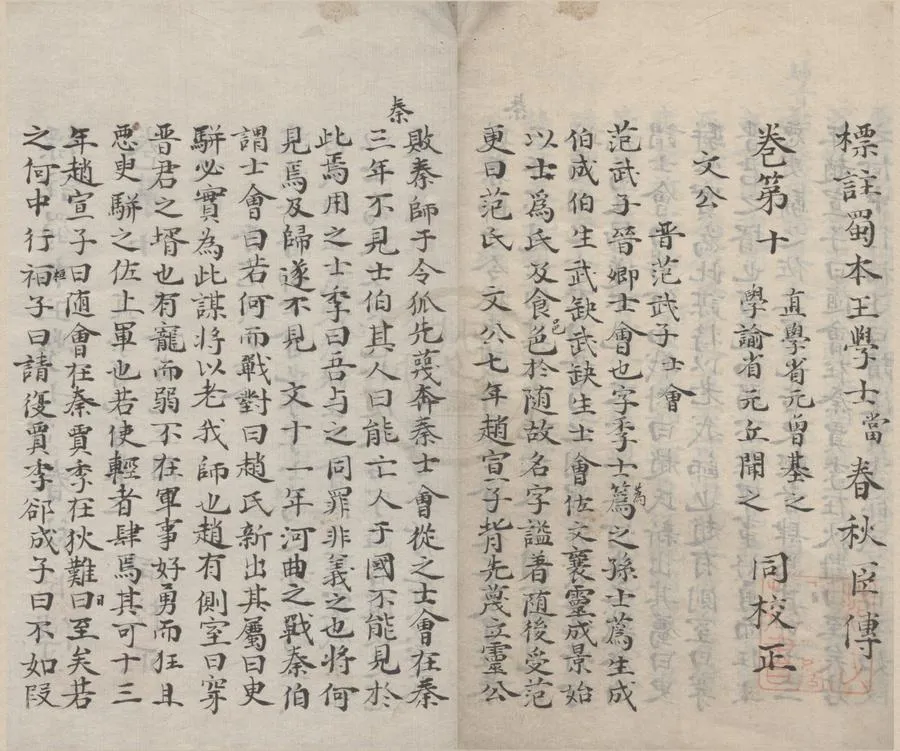 標註蜀本王學士當春秋臣傳
卷第十
直學省元曾基之
學諭省元丘聞之
同校正
文公
晉范武子士會
范武子晉卿士會也字季士篶之孫士蒍生成
蒍
伯成伯生武缺武缺生士會佐文襄靈成景始
以士爲氏及食色於随故名字謚著随後受范
邑
更曰范氏 文公七年趙宣子背先蔑立靈公
敗秦師于令狐先蔑奔秦士會從之士會在秦
秦
三年不見士伯其人曰能亡人于國不能見於
此焉用之士季曰吾与之同罪非義之也將何
見焉及歸遂不見 文十一年河曲之戰秦伯
謂士會曰若何而戰對曰趙氏新出其屬曰㬰
駢必實為此謀将以老我師也趙有側室曰穿
晉君之壻也有寵而弱不在軍事好勇而狂且
惡㬰駢之佐上軍也若使輕者肆焉其可十三
年趙宣子曰随會在秦賈季在狄難曰至矣若
日
之何中行祖子曰請復賈季郤成子曰不如叚
桓